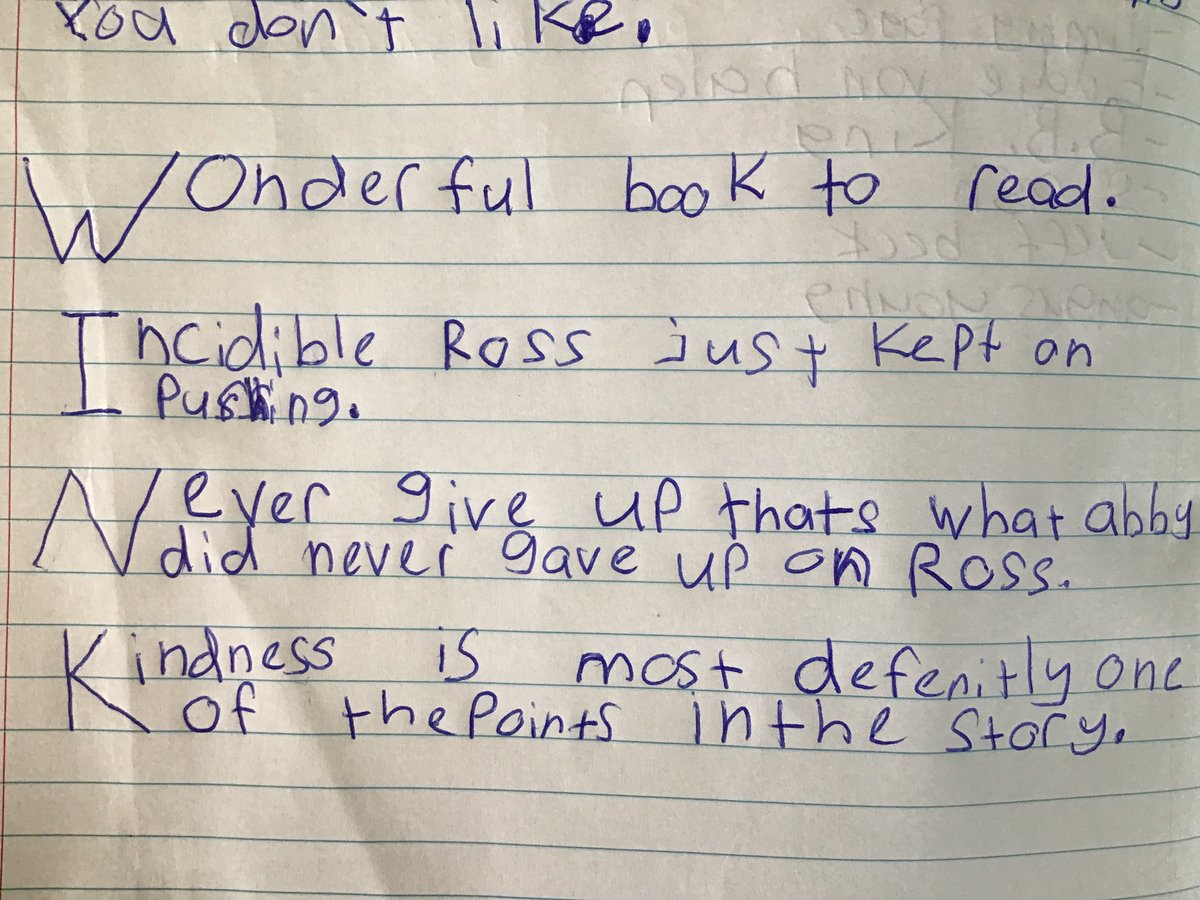 You don't like.
Wonderful book to read.
Incidible Ross just kept on
Pushing.
Never give up thats what abby
did never gave up on Ross.
Kindness is most defenitly one
of the Points in the Story.
Eddie von halen
B.B. King
Jeff beck
angus young